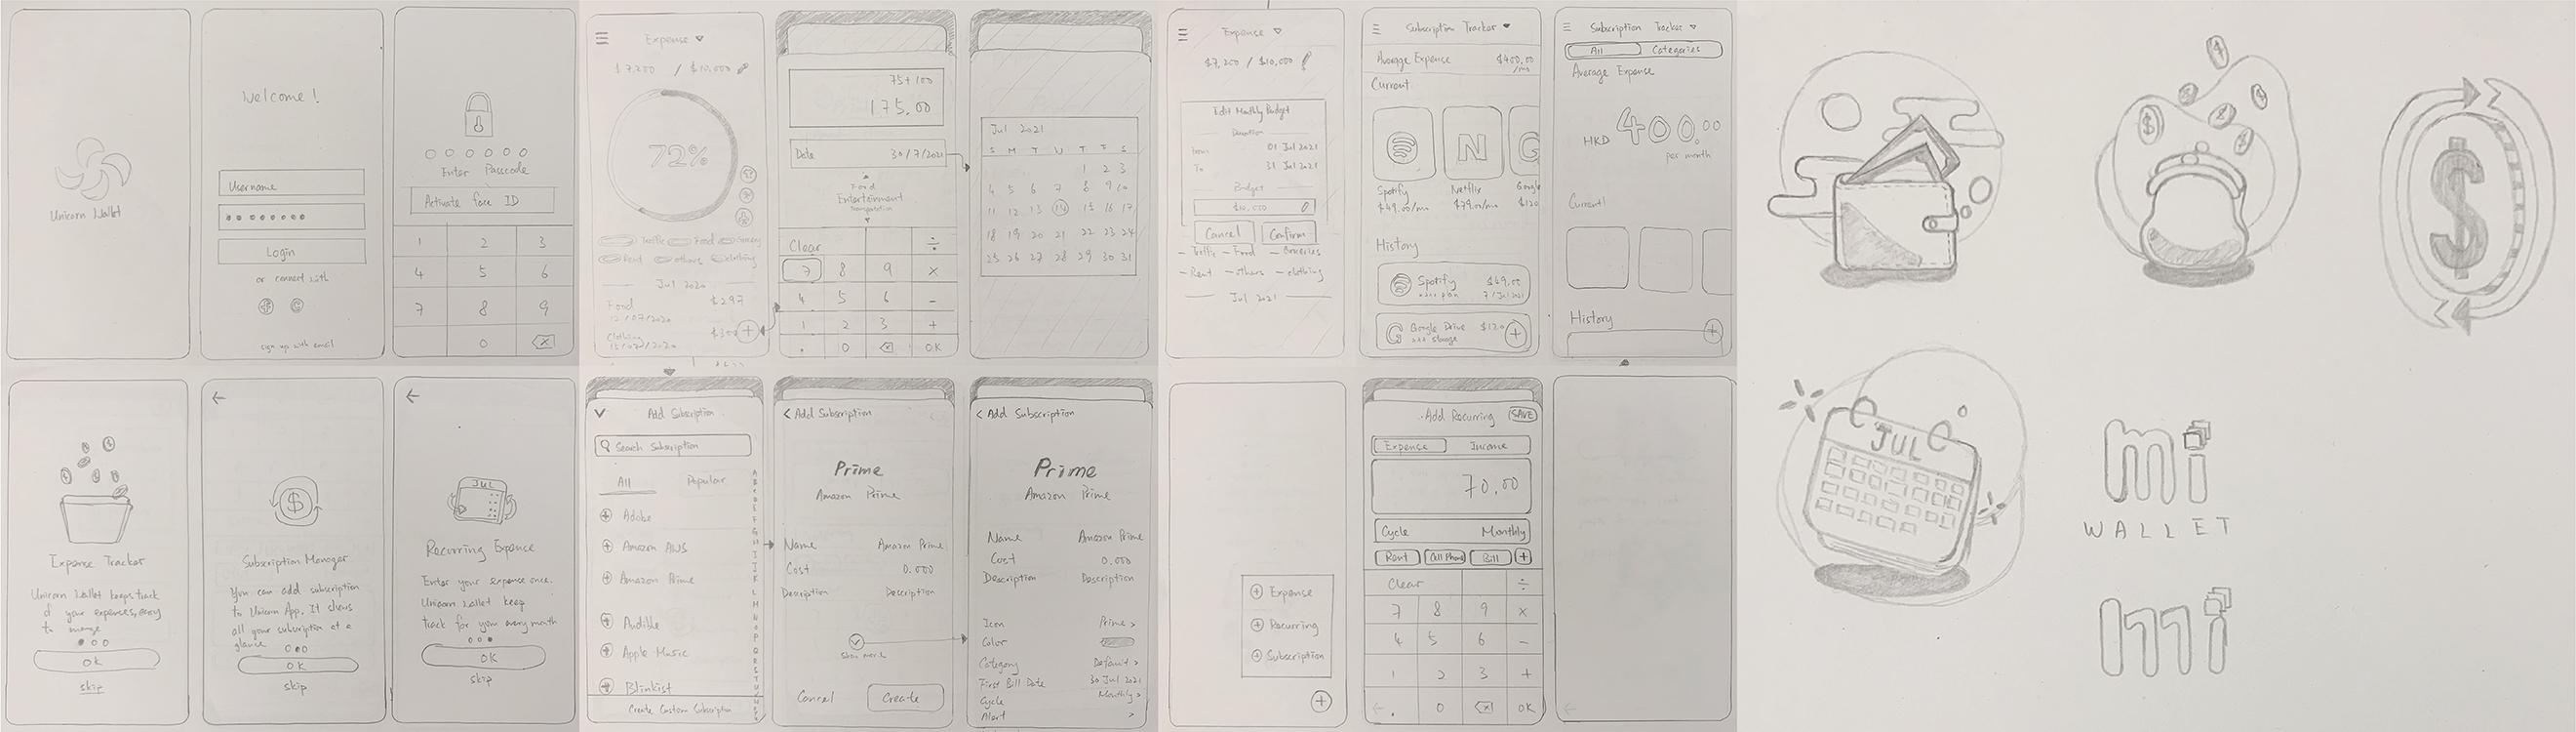 Unicorn Wallet
Welcome!
Username
Login
or connect with
sign up with email
Enter Passcode
Activate face ID
1 2 3
4 5 6
7 8 9
0
Expense
$7,200 / $10,000
72%
Traffic Food Grocery
Rent others clothing
Jul 2020
Food $297
12/07/2020
Clothing $300
75+100
175.00
Date 30/7/2021
Food
Entertainment
Transportation
Clear ÷
7 8 9 ×
4 5 6 −
1 2 3 +
. 0 OK
Jul 2021
S M T W T F S
1 2 3
4 5 6 7 8 9 10
11 12 13 14 15 16 17
18 19 20 21 22 23 24
25 26 27 28 29 30 31
Expense
$7,200 / $10,000
Edit Monthly Budget
Duration
From 01 Jul 2021
To 31 Jul 2021
Budget
$10,000
Cancel Confirm
Traffic Food Groceries
Rent others clothing
Jul 2021
Subscription Tracker
Average Expense $400.00
/mo
Current
N G
Spotify Netflix Google
$49.00/mo $79.00/mo $120
History
Spotify $49.00
7/Jul 2021
G Google Drive $120
storage
Subscription Tracker
All Categories
Average Expense
HKD 400.00
per month
Current
History
Expense Tracker
Unicorn Wallet keeps track
of your expenses, easy
to manage
OK
skip
Subscription Manager
You can add subscription
to Unicorn App. It shows
all your subscription at a
glance
OK
skip
JUL
Recurring Expense
Enter your expense once.
Unicorn Wallet keep
track for you every month
OK
skip
Add Subscription
Search Subscription
All Popular
Adobe
Amazon AWS
Amazon Prime
Audible
Apple Music
Blinkist
Create Custom Subscription
Add Subscription
Prime
Amazon Prime
Name Amazon Prime
Cost 0.000
Description Description
Show more
Cancel Create
Add Subscription
Prime
Amazon Prime
Name Amazon Prime
Cost 0.000
Description Description
Icon Prime >
Color
Category Default >
First Bill Date 30 Jul 2021
Cycle Monthly >
Alert >
Expense
Recurring
Subscription
Add Recurring SAVE
Expense Income
70.00
Cycle Monthly
Rent Cell Phone Bill +
Clear ÷
7 8 9 ×
4 5 6 −
1 2 3 +
. 0 OK
$
JUL
mi
WALLET
mi